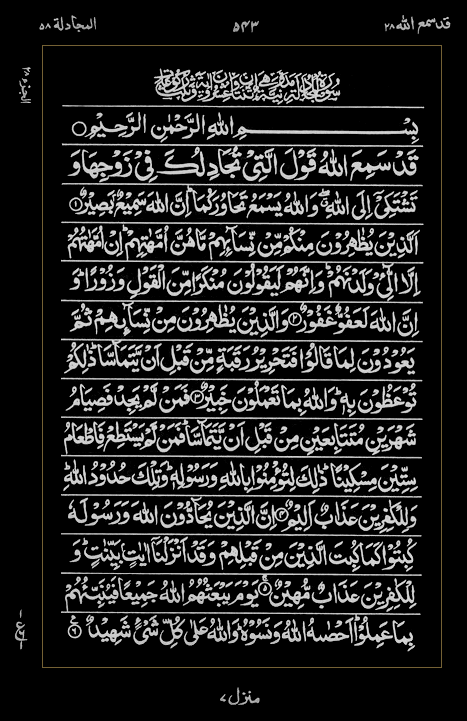 قد سمع الله ۲۸
۵۴۳
المجادلة ۵۸
الجزء ۲۸
بِسْمِ اللهِ الرَّحْمٰنِ الرَّحِيْمِ ○
قَدْ سَمِعَ اللهُ قَوْلَ الَّتِيْ تُجَادِلُكَ فِيْ زَوْجِهَا وَ
تَشْتَكِيْٓ اِلَى اللهِ ۖ وَاللهُ يَسْمَعُ تَحَاوُرَكُمَا ؕ اِنَّ اللهَ سَمِيْعٌۢ بَصِيْرٌ ۱
اَلَّذِيْنَ يُظٰهِرُوْنَ مِنْكُمْ مِّنْ نِّسَآئِهِمْ مَّا هُنَّ اُمَّهٰتِهِمْ ؕ اِنْ اُمَّهٰتُهُمْ
اِلَّا الّٰٓئِيْ وَلَدْنَهُمْ ؕ وَاِنَّهُمْ لَيَقُوْلُوْنَ مُنْكَرًا مِّنَ الْقَوْلِ وَزُوْرًا ؕ وَ
اِنَّ اللهَ لَعَفُوٌّ غَفُوْرٌ ۲ وَالَّذِيْنَ يُظٰهِرُوْنَ مِنْ نِّسَآئِهِمْ ثُمَّ
يَعُوْدُوْنَ لِمَا قَالُوْا فَتَحْرِيْرُ رَقَبَةٍ مِّنْ قَبْلِ اَنْ يَّتَمَآسَّا ؕ ذٰلِكُمْ
تُوْعَظُوْنَ بِهٖ ؕ وَاللهُ بِمَا تَعْمَلُوْنَ خَبِيْرٌ ۳ فَمَنْ لَّمْ يَجِدْ فَصِيَامُ
شَهْرَيْنِ مُتَتَابِعَيْنِ مِنْ قَبْلِ اَنْ يَّتَمَآسَّا ۚ فَمَنْ لَّمْ يَسْتَطِعْ فَاِطْعَامُ
سِتِّيْنَ مِسْكِيْنًا ؕ ذٰلِكَ لِتُؤْمِنُوْا بِاللهِ وَرَسُوْلِهٖ ؕ وَتِلْكَ حُدُوْدُ اللهِ ؕ
وَلِلْكٰفِرِيْنَ عَذَابٌ اَلِيْمٌ ۴ اِنَّ الَّذِيْنَ يُحَآدُّوْنَ اللهَ وَرَسُوْلَهٗ
كُبِتُوْا كَمَا كُبِتَ الَّذِيْنَ مِنْ قَبْلِهِمْ وَقَدْ اَنْزَلْنَآ اٰيٰتٍۢ بَيِّنٰتٍ ؕ وَ
لِلْكٰفِرِيْنَ عَذَابٌ مُّهِيْنٌ ۵ يَوْمَ يَبْعَثُهُمُ اللهُ جَمِيْعًا فَيُنَبِّئُهُمْ
بِمَا عَمِلُوْا ؕ اَحْصٰىهُ اللهُ وَنَسُوْهُ ؕ وَاللهُ عَلٰى كُلِّ شَيْءٍ شَهِيْدٌ ۶
منزل ۷